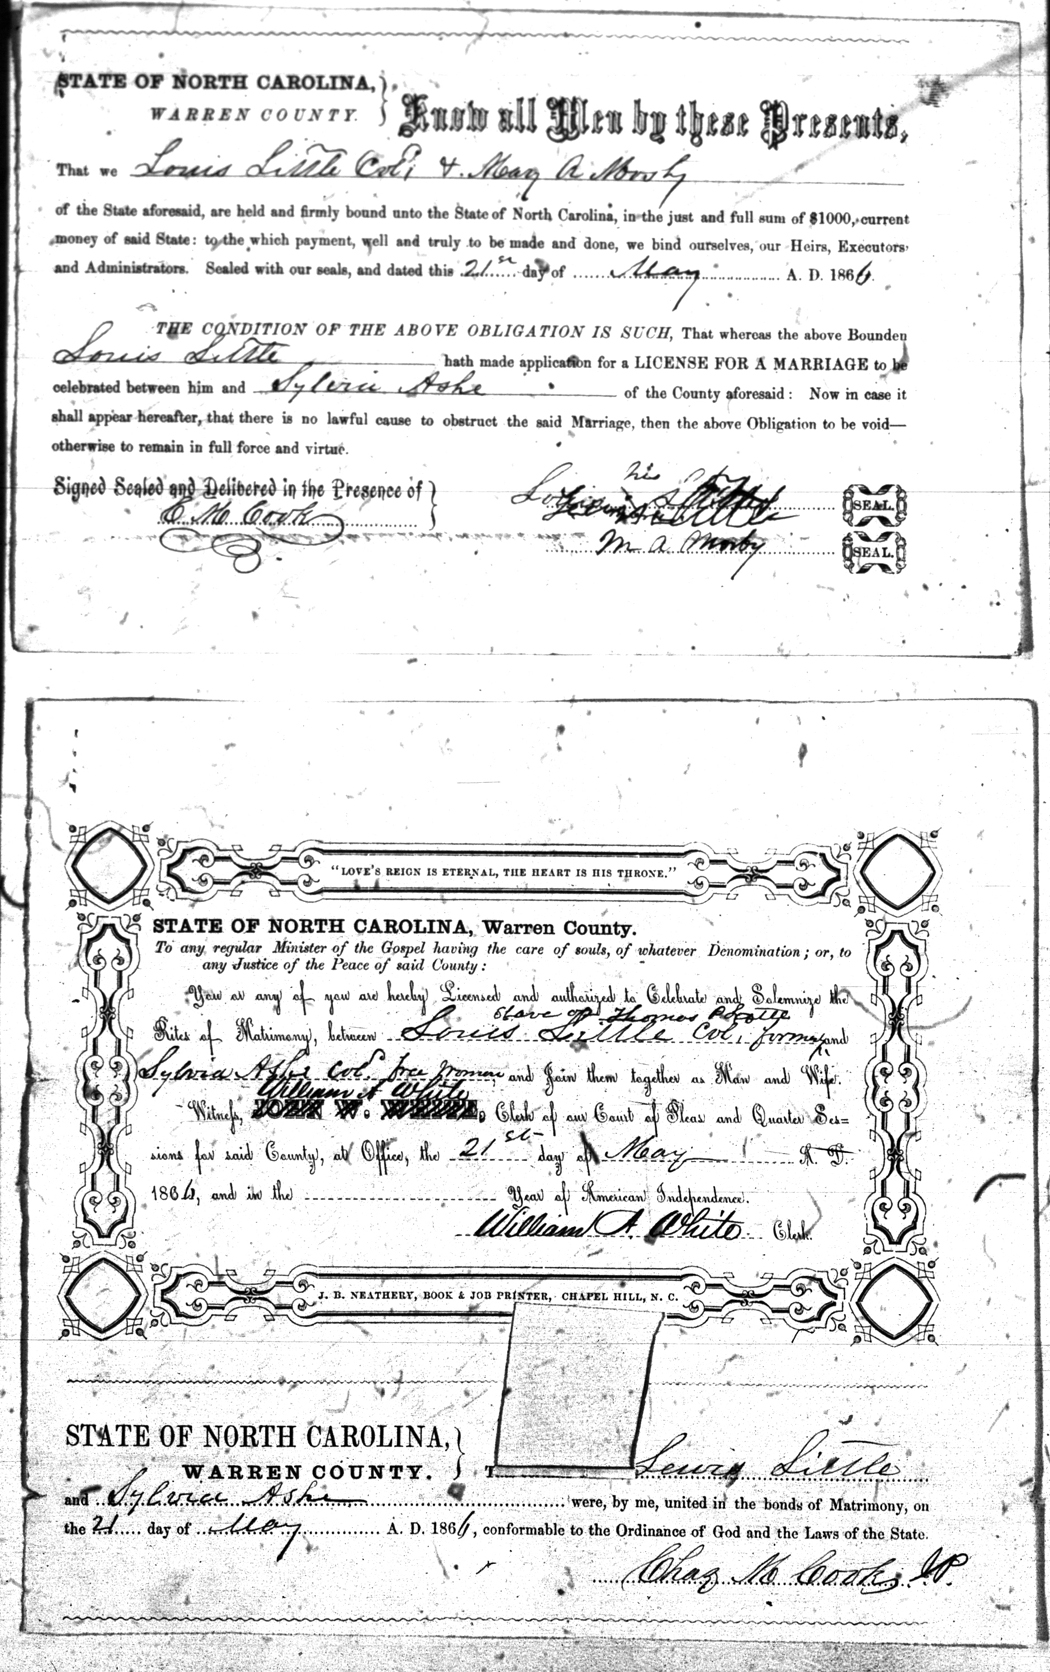 STATE OF NORTH CAROLINA,
WARREN COUNTY.
Know all Men by these Presents,
That we Louis Little Col, & May A Mosby
of the State aforesaid, are held and firmly bound unto the State of North Carolina, in the just and full sum of $1000, current
money of said State: to the which payment, well and truly to be made and done, we bind ourselves, our Heirs, Executors
and Administrators. Sealed with our seals, and dated this 21st day of May A. D. 1866.
THE CONDITION OF THE ABOVE OBLIGATION IS SUCH, That whereas the above Bounden
Louis Little hath made application for a LICENSE FOR A MARRIAGE to be
celebrated between him and Sylvia Ashe of the County aforesaid: Now in case it
shall appear hereafter, that there is no lawful cause to obstruct the said Marriage, then the above Obligation to be void—
otherwise to remain in full force and virtue.
his
Signed Sealed and Delibered in the Presence of
E M Cook
SEAL.
M A Mosby SEAL.
"LOVE'S REIGN IS ETERNAL, THE HEART IS HIS THRONE."
STATE OF NORTH CAROLINA, Warren County.
To any regular Minister of the Gospel having the care of souls, of whatever Denomination; or, to
any Justice of the Peace of said County:
You or any of you are hereby Licensed and authorized to Celebrate and Solemnize the
slave of Thomas
Rites of Matrimony, between Louis Little Col, formerly and
Sylvia Ashe Col. free woman and Join them together as Man and Wife.
William A White
Witness, Clerk of our Court of Pleas and Quarter Ses=
sions for said County, at Office, the 21st day of May A. D.
1866, and in the Year of American Independence.
William A. White Clerk.
J. B. NEATHERY, BOOK & JOB PRINTER, CHAPEL HILL, N. C.
STATE OF NORTH CAROLINA,
WARREN COUNTY.
Lewis Little
and Sylvia Ashe were, by me, united in the bonds of Matrimony, on
the 21 day of May A. D. 1866, conformable to the Ordinance of God and the Laws of the State.
Chas M Cook, J.P.